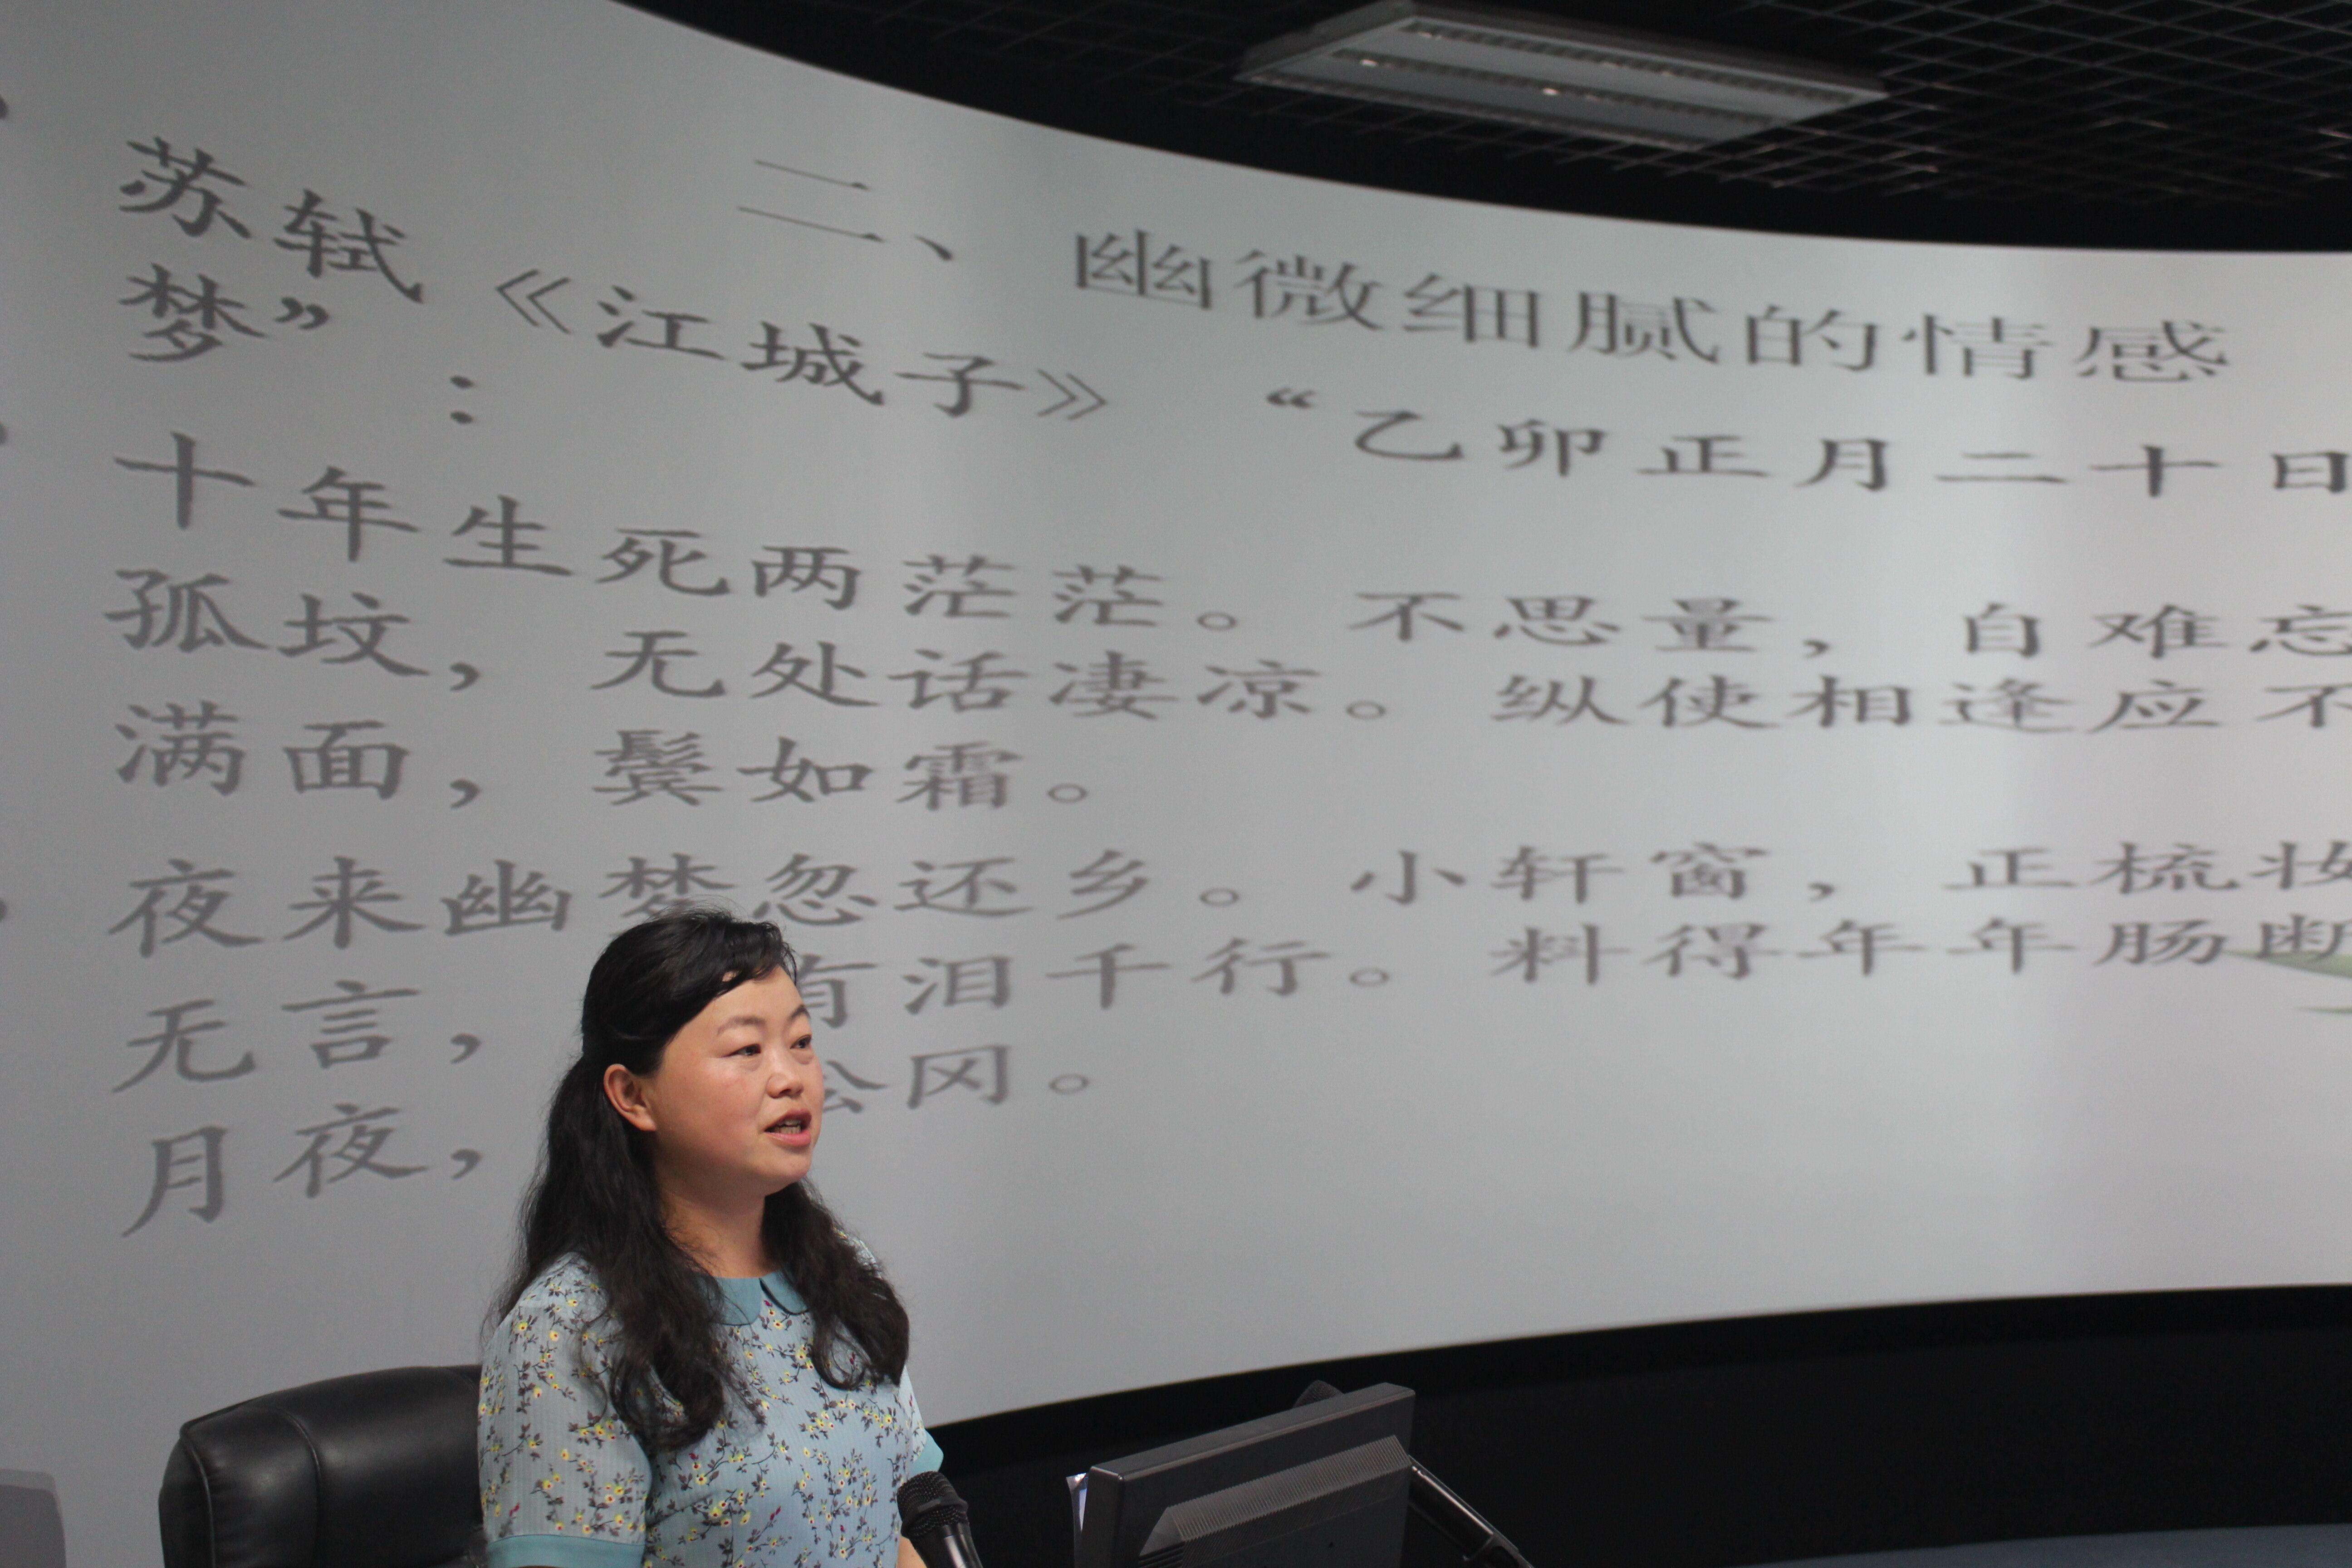 二、幽微细腻的情感
苏轼《江城子》 “乙卯正月二十日
梦”：
十年生死两茫茫。不思量，自难忘
孤坟，无处话凄凉。纵使相逢应不
满面，鬓如霜。
夜来幽梦忽还乡。小轩窗，正梳妆
无言，有泪千行。料得年年肠断
月夜，松冈。